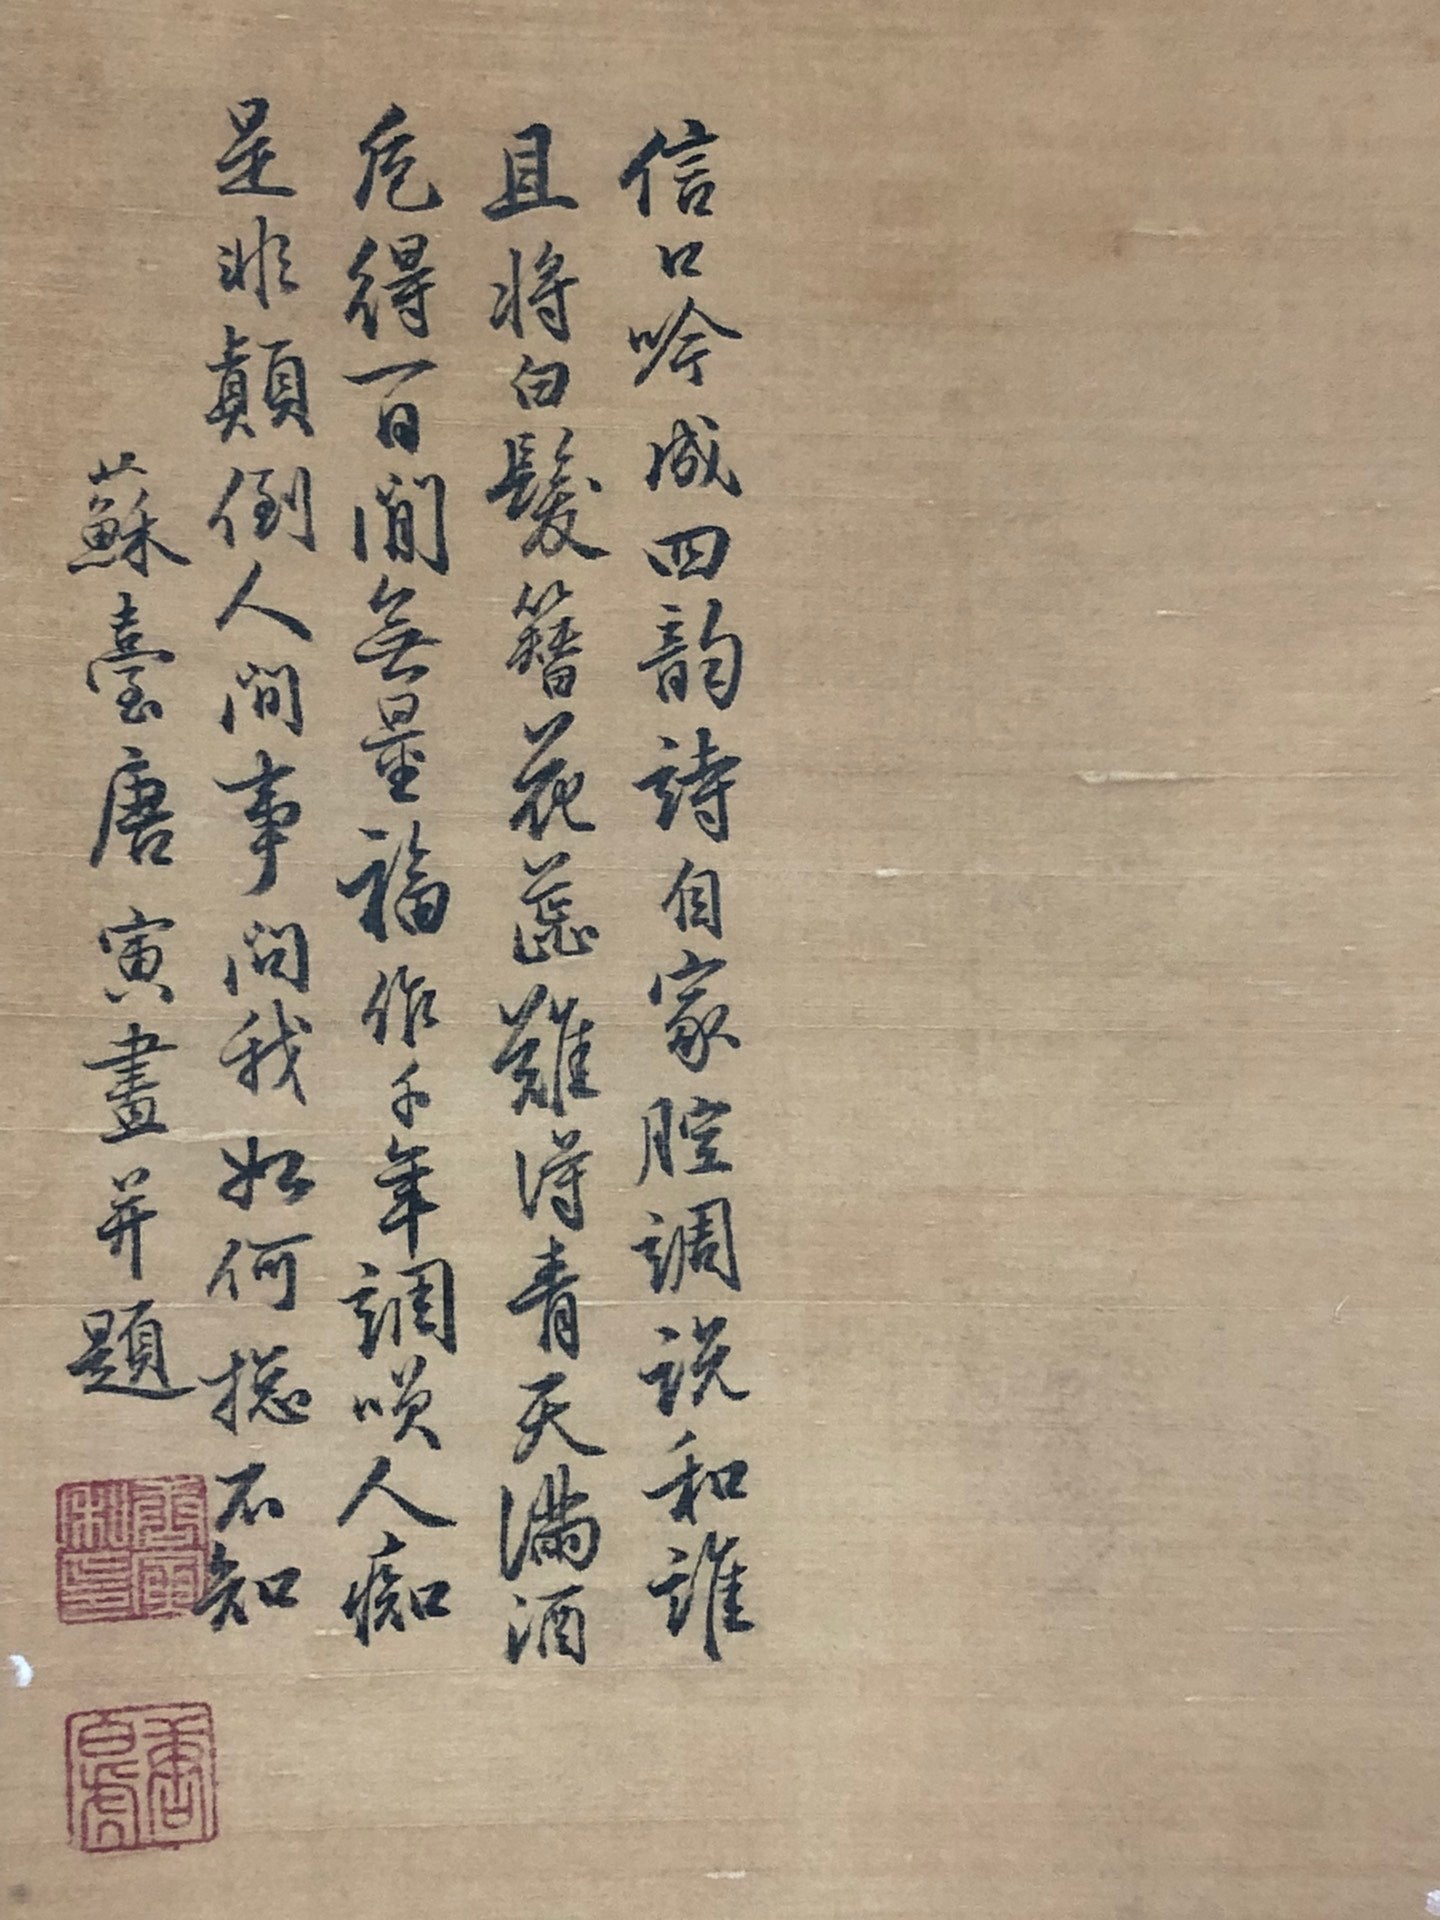 信口吟成四韵詩自家腔調説和誰
且將白髮簪花蕊難得青天滿酒
卮得一百閒無量福作千年調嘆人痴
是非顛倒人間事問我如何捴不知
蘇臺唐寅畫并題